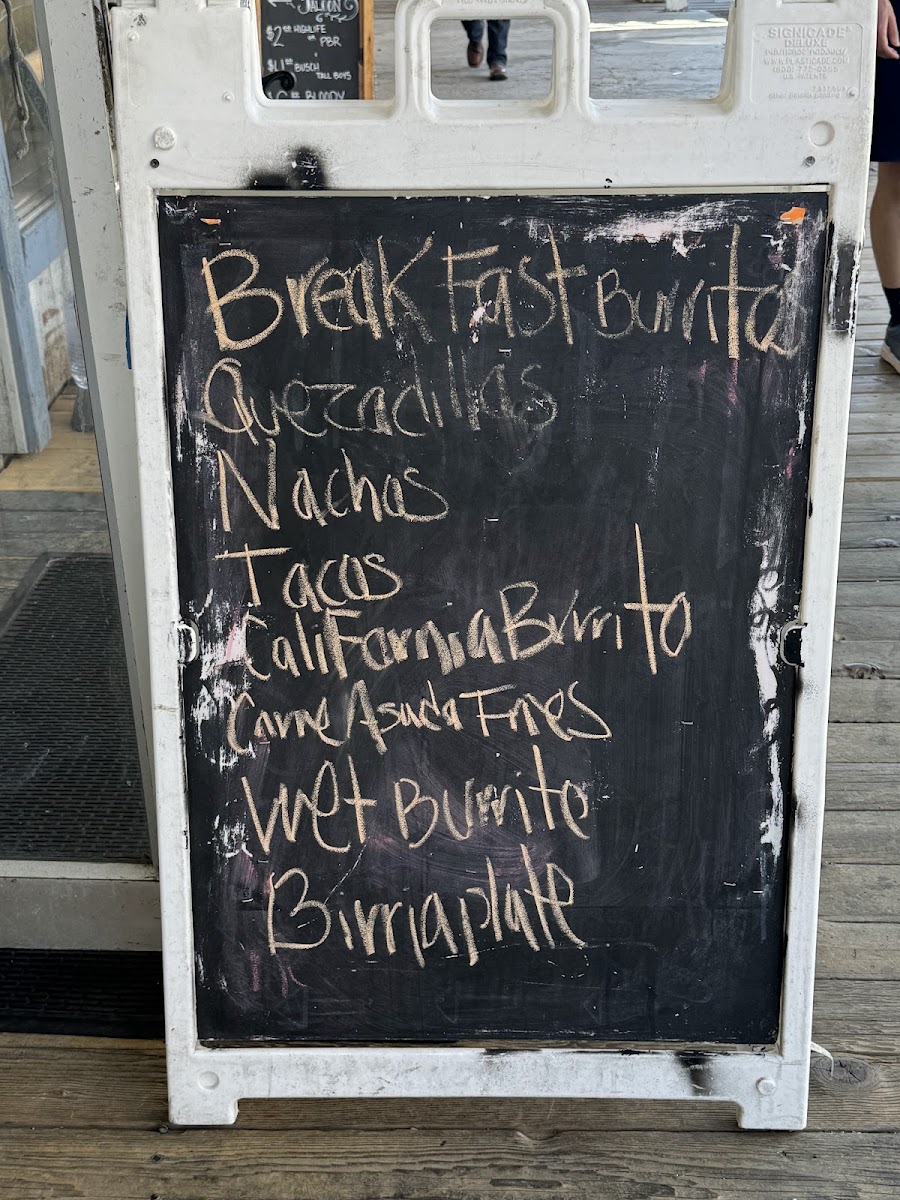 SALOON
$2 HIGHLIFE
OR PBR
$4 BUSCH
TALL BOYS
BLOODY
SIGNICADE
DELUXE
BreakFast Burrito
Quezadillas
Nachos
Tacos
CaliFornia Burrito
Carne Asada Fries
Wet Burrito
Birria plate